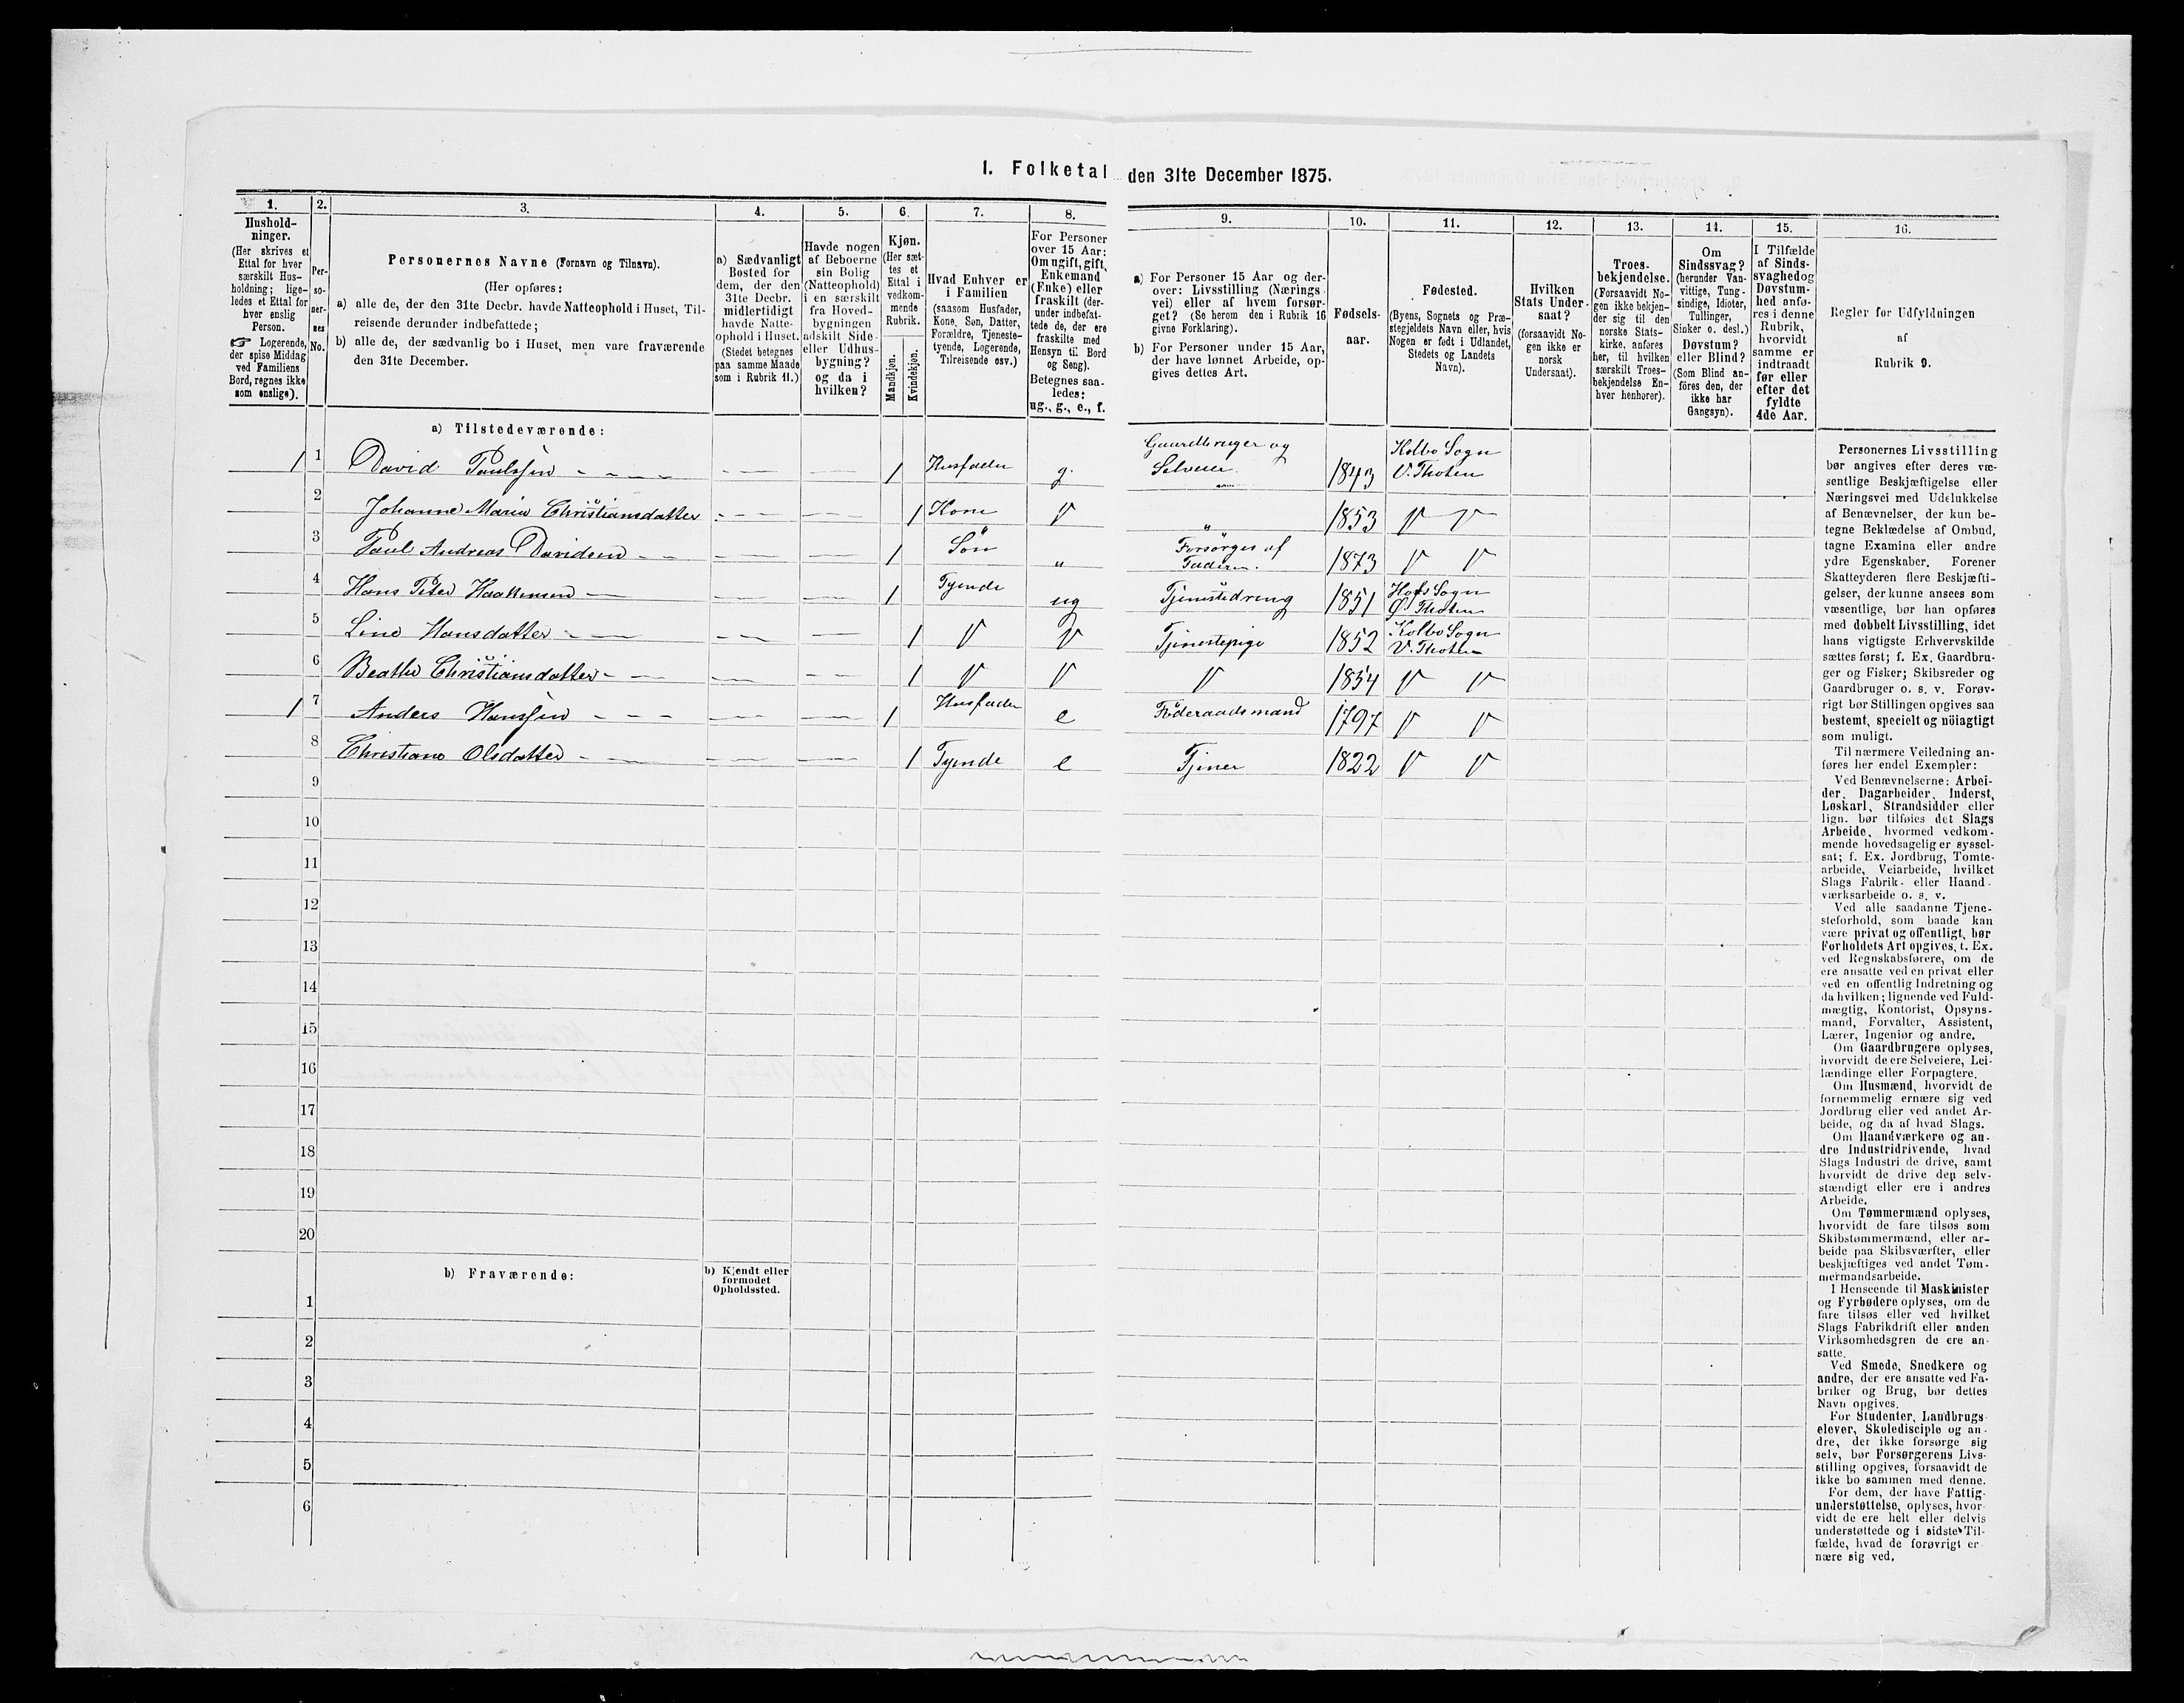 I. Folketal den 31te December 1875.
1.
Hushold-
ninger.
(Her skrives et
Ettal for hver
særskilt Hus-
holdning; lige-
ledes et Ettal for
hver enslig
Person.
☞ Logerende,
der spise Middag
ved Familiens
Bord, regnes ikke
som enslige).
2.
Per-
so-
ner-
nes
No.
3.
Personernes Navne (Fornavn og Tilnavn).
(Her opføres:
a) alle de, der den 31te Decbr. havde Natteophold i Huset, Til-
reisende derunder indbefattede;
b) alle de, der sædvanlig bo i Huset, men vare fraværende
den 31te December.
4.
a) Sædvanligt
Bosted for
dem, der den
31te Decbr.
midlertidigt
havde Natte-
ophold i Huset.
(Stedet betegnes
paa samme Maade
som i Rubrik 11.)
5.
Havde nogen
af Beboerne
sin Bolig
(Natteophold)
i en særskilt
fra Hoved-
bygningen
adskilt Side-
eller Udhus-
bygning?
og da i
hvilken?
6.
Kjøn.
(Her sæt-
tes et
Ettal i
vedkom-
mende
Rubrik.
Mandkjøn.
Kvindekjøn.
7.
Hvad Enhver er
i Familien
(saasom Husfader,
Kone, Søn, Datter,
Forældre, Tjeneste-
tyende, Logerende,
Tilreisende osv.)
8.
For Personer
over 15 Aar:
Om ugift, gift,
Enkemand
(Enke) eller
fraskilt (der-
under indbefat-
tede de, der ere
fraskilte med
Hensyn til Bord
og Seng).
Betegnes saa-
ledes:
ug., g., e., f.
9.
a) For Personer 15 Aar og der-
over: Livsstilling (Nærings-
vei) eller af hvem forsør-
get? (Se herom den i Rubrik 16
givne Forklaring).
b) For Personer under 15 Aar,
der have lønnet Arbeide, op-
gives dettes Art.
10.
Fødsels-
aar.
11.
Fødested.
(Byens, Sognets og Præ-
stegjeldets Navn eller, hvis
Nogen er født i Udlandet,
Stedets og Landets
Navn).
12.
Hvilken
Stats Under-
saat?
(forsaavidt No-
gen ikke er
norsk
Undersaat).
13.
Troes-
bekjendelse.
(Forsaavidt No-
gen ikke bekjen-
der sig til den
norske Stats-
kirke, anføres
her, til hvilken
særskilt Troes-
bekjendelse En-
hver henhører).
14.
Om
Sindssvag?
(herunder Van-
vittige, Tung-
sindige, Idioter,
Tullinger,
Sinker o. desl.)
Døvstum?
eller Blind?
(Som Blind an-
föres den, der
ikke har
Gangsyn).
15.
I Tilfælde
af Sinds-
svaghed og
Døvstum-
hed anfø-
res i denne
Rubrik,
hvorvidt
samme er
indtraadt
før eller
efter det
fyldte
4de Aar.
16.
Regler for Udfyldningen
af
Rubrik 9.
a) Tilstedeværende:
1 1 David Paulssen - - - - 1 Husfader g. Gaardbruger og Selveier 1843 Kolbo Sogn V. Thoten
2 Johanne Maria Christiansdatter 1 Kone V " 1853 V V
3 Paul Andreas Davidsen - - 1 Sön " Forsörges af Faderen. 1873 V V
4 Hans Peter Haakensen - 1 Tyende ug Tjenestedreng 1851 Hofs Sogn Ø. Thoten
5 Line Hansdatter - - 1 V V Tjenestepige 1852 Kolbo Sogn V. Thoten
6 Beathe Christiansdatter - - 1 V V V 1854 V V
1 7 Anders Hanssen - - - 1 Husfader e Föderaadsmand 1797 V V
8 Christiane Olsdatter - - 1 Tyende e Tjener 1822 V V
9
10
11
12
13
14
15
16
17
18
19
20
b) Fraværende:
b) Kjendt eller
formodet
Opholdssted.
1
2
3
4
5
6
Personernes Livsstilling
bør angives efter deres væ-
sentlige Beskjæftigelse eller
Næringsvei med Udelukkelse
af Benævnelser, der kun be-
tegne Beklædelse af Ombud,
tagne Examina eller andre
ydre Egenskaber. Forener
Skatteyderen flere Beskjæfti-
gelser, der kunne ansees som
væsentlige, bør han opføres
med dobbelt Livsstilling, idet
hans vigtigste Erhvervskilde
sættes først; f. Ex. Gaardbru-
ger og Fisker; Skibsreder og
Gaardbruger o. s. v. Forøv-
rigt bør Stillingen opgives saa
bestemt, specielt og nöiagtigt
som muligt.
Til nærmere Veiledning an-
føres her endel Exempler:
Ved Benævnelserne: Arbei-
der, Dagarbeider, Inderst,
Løskarl, Strandsidder eller
lign. bør tilføies det Slags
Arbeide, hvormed vedkom-
mende hovedsagelig er syssel-
sat; f. Ex. Jordbrug, Tomte-
arbeide, Veiarbeide, hvilket
Slags Fabrik- eller Haand-
værksarbeide o. s. v.
Ved alle saadanne Tjene-
steforhold, som baade kan
være privat og offentligt, bør
Forholdets Art opgives, t. Ex.
ved Regnskabsførere, om de
ere ansatte ved en privat eller
ved en offentlig Indretning og
da hvilken; lignende ved Fuld-
mægtig, Kontorist, Opsyns-
mand, Forvalter, Assistent,
Lærer, Ingeniør og andre.
Om Gaardbrugere oplyses,
hvorvidt de ere Selveiere, Lei-
lændinge eller Forpagtere.
Om Husmænd, hvorvidt de
fornemmelig ernære sig ved
Jordbrug eller ved andet Ar-
beide, og da af hvad Slags.
Om Haandværkere og an-
dre Industridrivende, hvad
Slags Industri de drive, samt
hvorvidt de drive den selv-
stændigt eller ere i andres
Arbeide.
Om Tømmermænd oplyses,
hvorvidt de fare tilsøs som
Skibstømmermænd, eller ar-
beide paa Skibsværfter, eller
beskjæftiges ved andet Tøm-
mermandsarbeide.
I Henseende til Maskinister
og Fyrbødere oplyses, om de
fare tilsøs eller ved hvilket
Slags Fabrikdrift eller anden
Virksomhedsgren de ere an-
satte.
Ved Smede, Snedkere og
andre, der ere ansatte ved Fa-
briker og Brug, bør dettes
Navn opgives.
For Studenter, Landbrugs-
elever, Skoledisciple og an-
dre, der ikke forsørge sig
selv, bør Forsørgerens Livs-
stilling opgives, forsaavidt de
ikke bo sammen med denne.
For dem, der have Fattig-
understøttelse, oplyses, hvor-
vidt de ere helt eller delvis
understøttede og i sidste Til-
fælde, hvad de forøvrigt er-
nære sig ved.